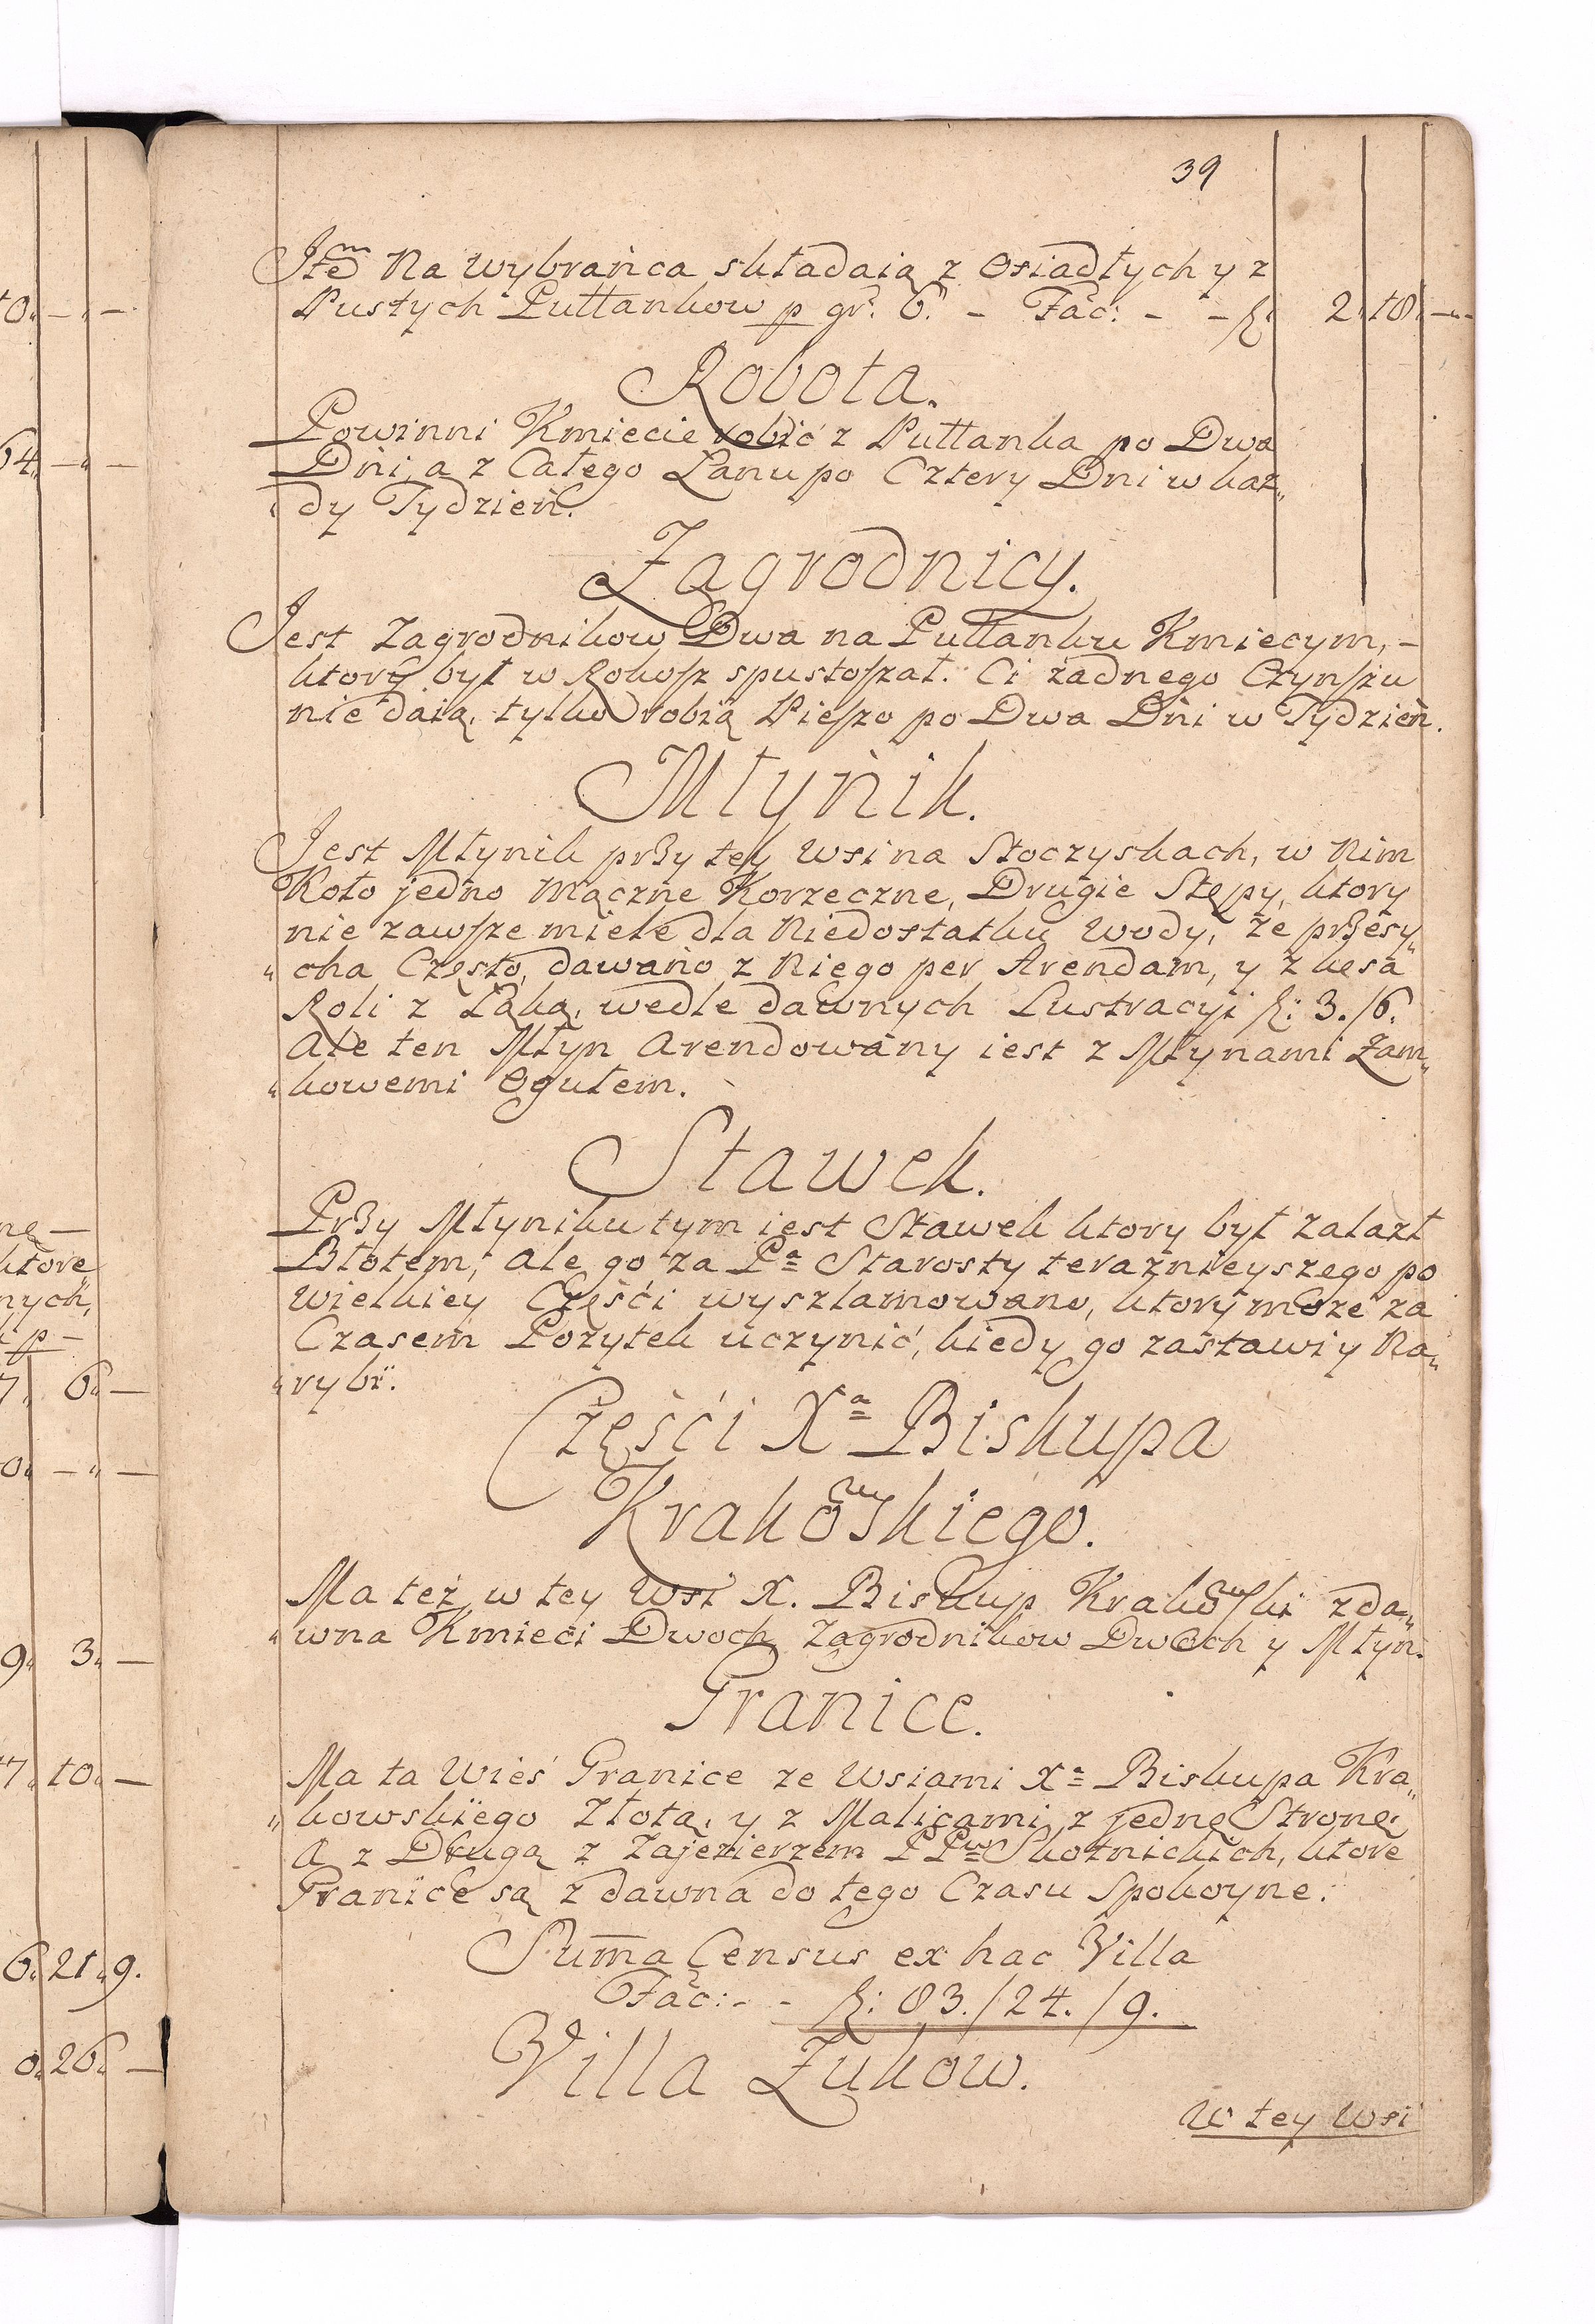 39
Itẽm Na Wybrańca składaią z Osiadłych y z
Pustych Pułłankow p gr: 6. - Fač: - - fl: 2 „ 18 „ —
Robota.
Powinni Kmiecie robić z Pułłanka po Dwa
Dni, a z Całego Łanu po Cztery Dni w każ„
„dy Tydzień.
Zagrodnicy.
Jest Zagrodnikow Dwa na Pułłanku Kmiecym, -
ktory był w Rokosz spustoszał. Ci żadnego Czynszu
nie daią, tylko robią Pieszo po Dwa Dni w Tydzień.
Młynik.
Jest Młynik przy tey Wsi na Stoczyskach, w Nim
Koło jedno Mączne Korzeczne, Drugie Stępy, ktory
nie zawsze miele dla Niedostatku Wody, że przesy„
„cha Często, dawano z Niego per Arendam, y z kęsa
Roli z Łąką, wedle dawnych Lustracyi fl: 3./6.
Ale ten Młyn Arendowany iest z Młynami Zam„
„kowemi Ogułem.
Stawek.
Przy Młyniku tym iest Stawek ktory był zalazł
Błotem; ale go za Pª Starosty teraznieyszego po
Wielkiey Części wyszlamowano, ktory może za
Czasem Pożytek uczynić, kiedy go zastawi y Na„
„rybi.
Części Xª Biskupa
Krakowskiego.
Ma też w tey Wsi X. Biskup Krakowski zda„
„wna Kmieci Dwoch Zagrodnikow Dwoch y Młyn.
Granice.
Ma ta Wieś Granice ze Wsiami Xª Biskupa Kra„
„kowskiego Złotą, y z Malicami z jednę Stronę,
A z Drugą z Zajezierzem PPw Skotnickich, ktore
Granice są z dawna do tego Czasu Spokoyne.
Sum̃a Census ex hac Villa
Fač: - - fl: 83./24./9.
Villa Żukow.
W tey Wsi